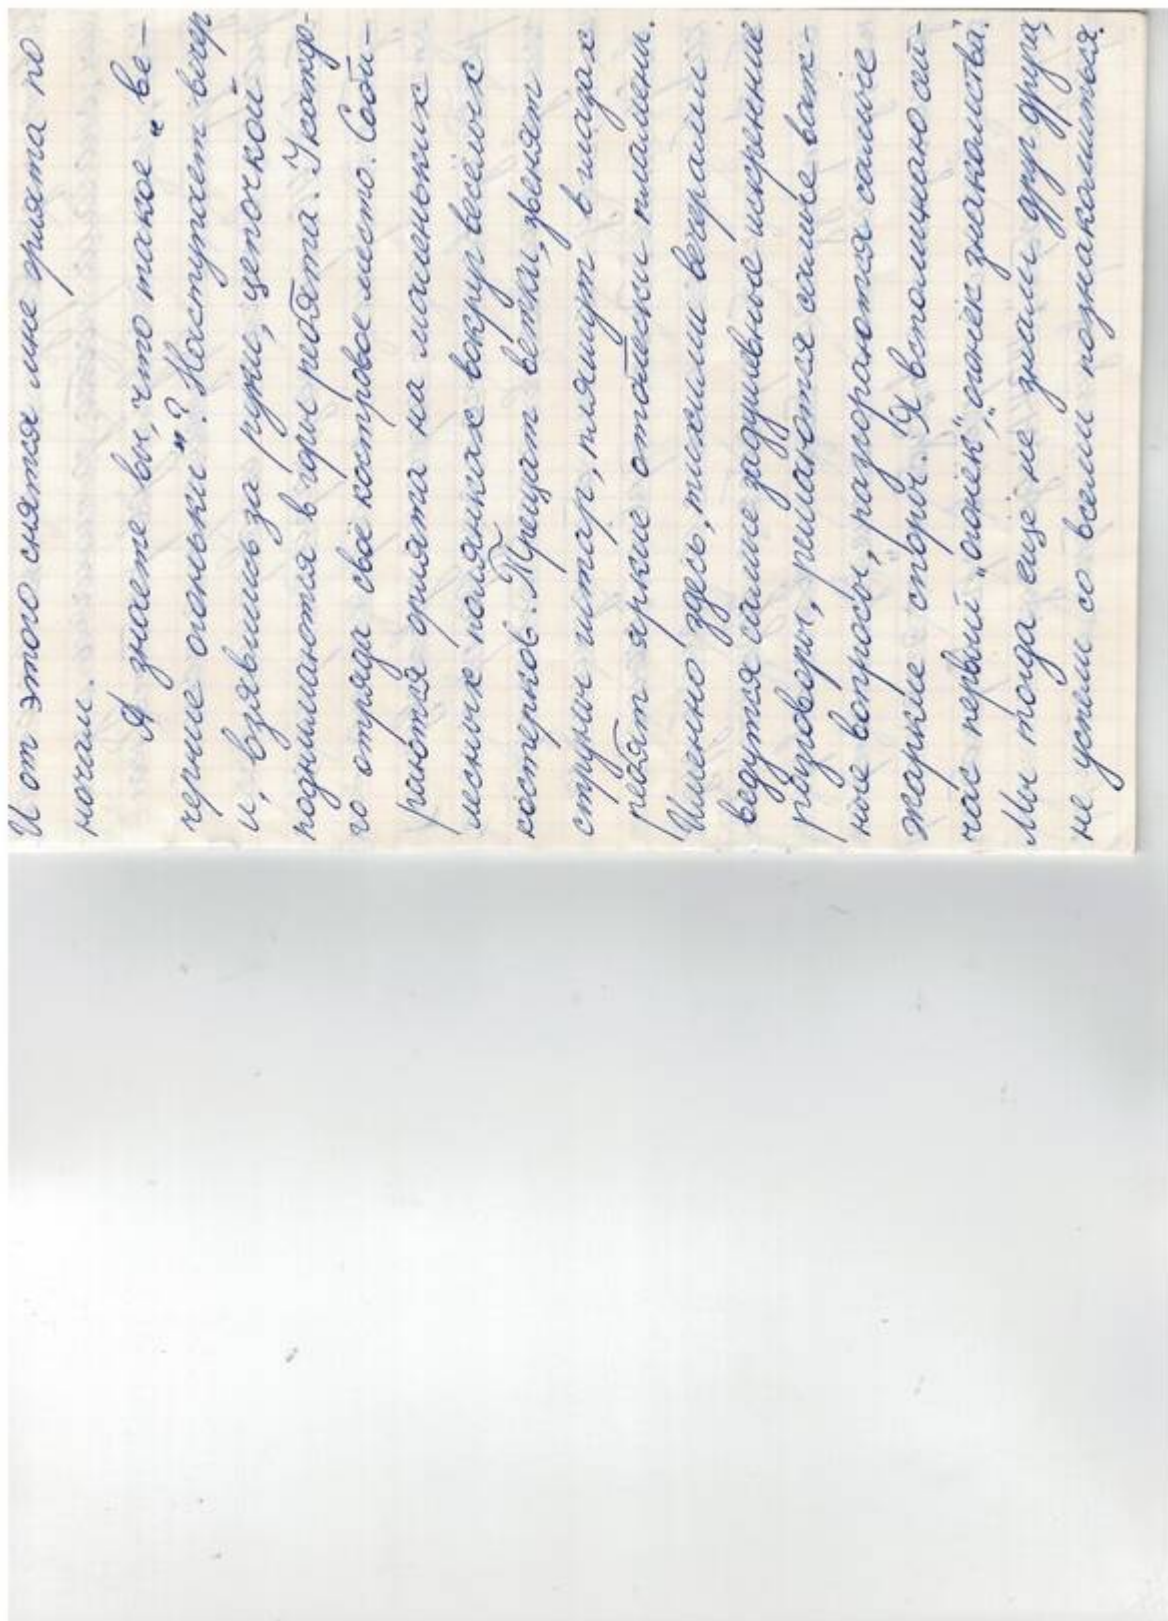 И от этого снятся мне орлята по
ночам.
А знаете вы, что такое „ве-
черние огоньки"? Наступает вечер
и, взявшись за руки, цепочкой
поднимаются в горы ребята. У каждо-
го отряда своё костровое место. Соби-
раются орлята на маленьких
лесных полянках вокруг весёлых
костерков. Трещат ветки, звенят
струны гитар, пляшут в глазах
ребят яркие отблески пламени.
Именно здесь, тихими вечерами
ведутся самые задушевные искренние
разговоры, решаются самые важ-
ные вопросы, разгораются самые
жаркие споры. Я вспоминаю сей-
час первый „огонёк", „огонёк знакомства".
Мы тогда ещё не знали друг друга,
не успели со всеми познакомиться.